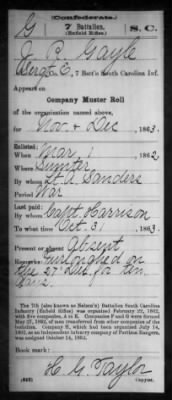 (Confederate.)
G 7 Battalion, S.C.
(Enfield Rifles)
J. R. Gayle
Sergt E, 7 Batt'n South Carolina Inf.
Appears on
Company Muster Roll
of the organization named above,
for Nov & Dec, 1863
Enlisted:
When Mar 1, 1862
Where Sumter
By whom D. A. Sanders
Period War
Last paid:
By whom Capt. Harrison
To what time Oct 31, 1863
Present or absent Absent
Remarks: Furloughed on
the 27 Dec for ten
days
The 7th (also known as Nelson's) Battalion South Carolina
Infantry (Enfield Rifles) was organized February 22, 1862,
with five companies, A to E. Companies F and G were formed
May 27, 1862, of men transferred from other companies of the
battalion. Company H, which had been organized July 14,
1862, as an independent company of Partisan Rangers, was
assigned October 14, 1862.
Book mark:
H. G. Taylor
Copyist.